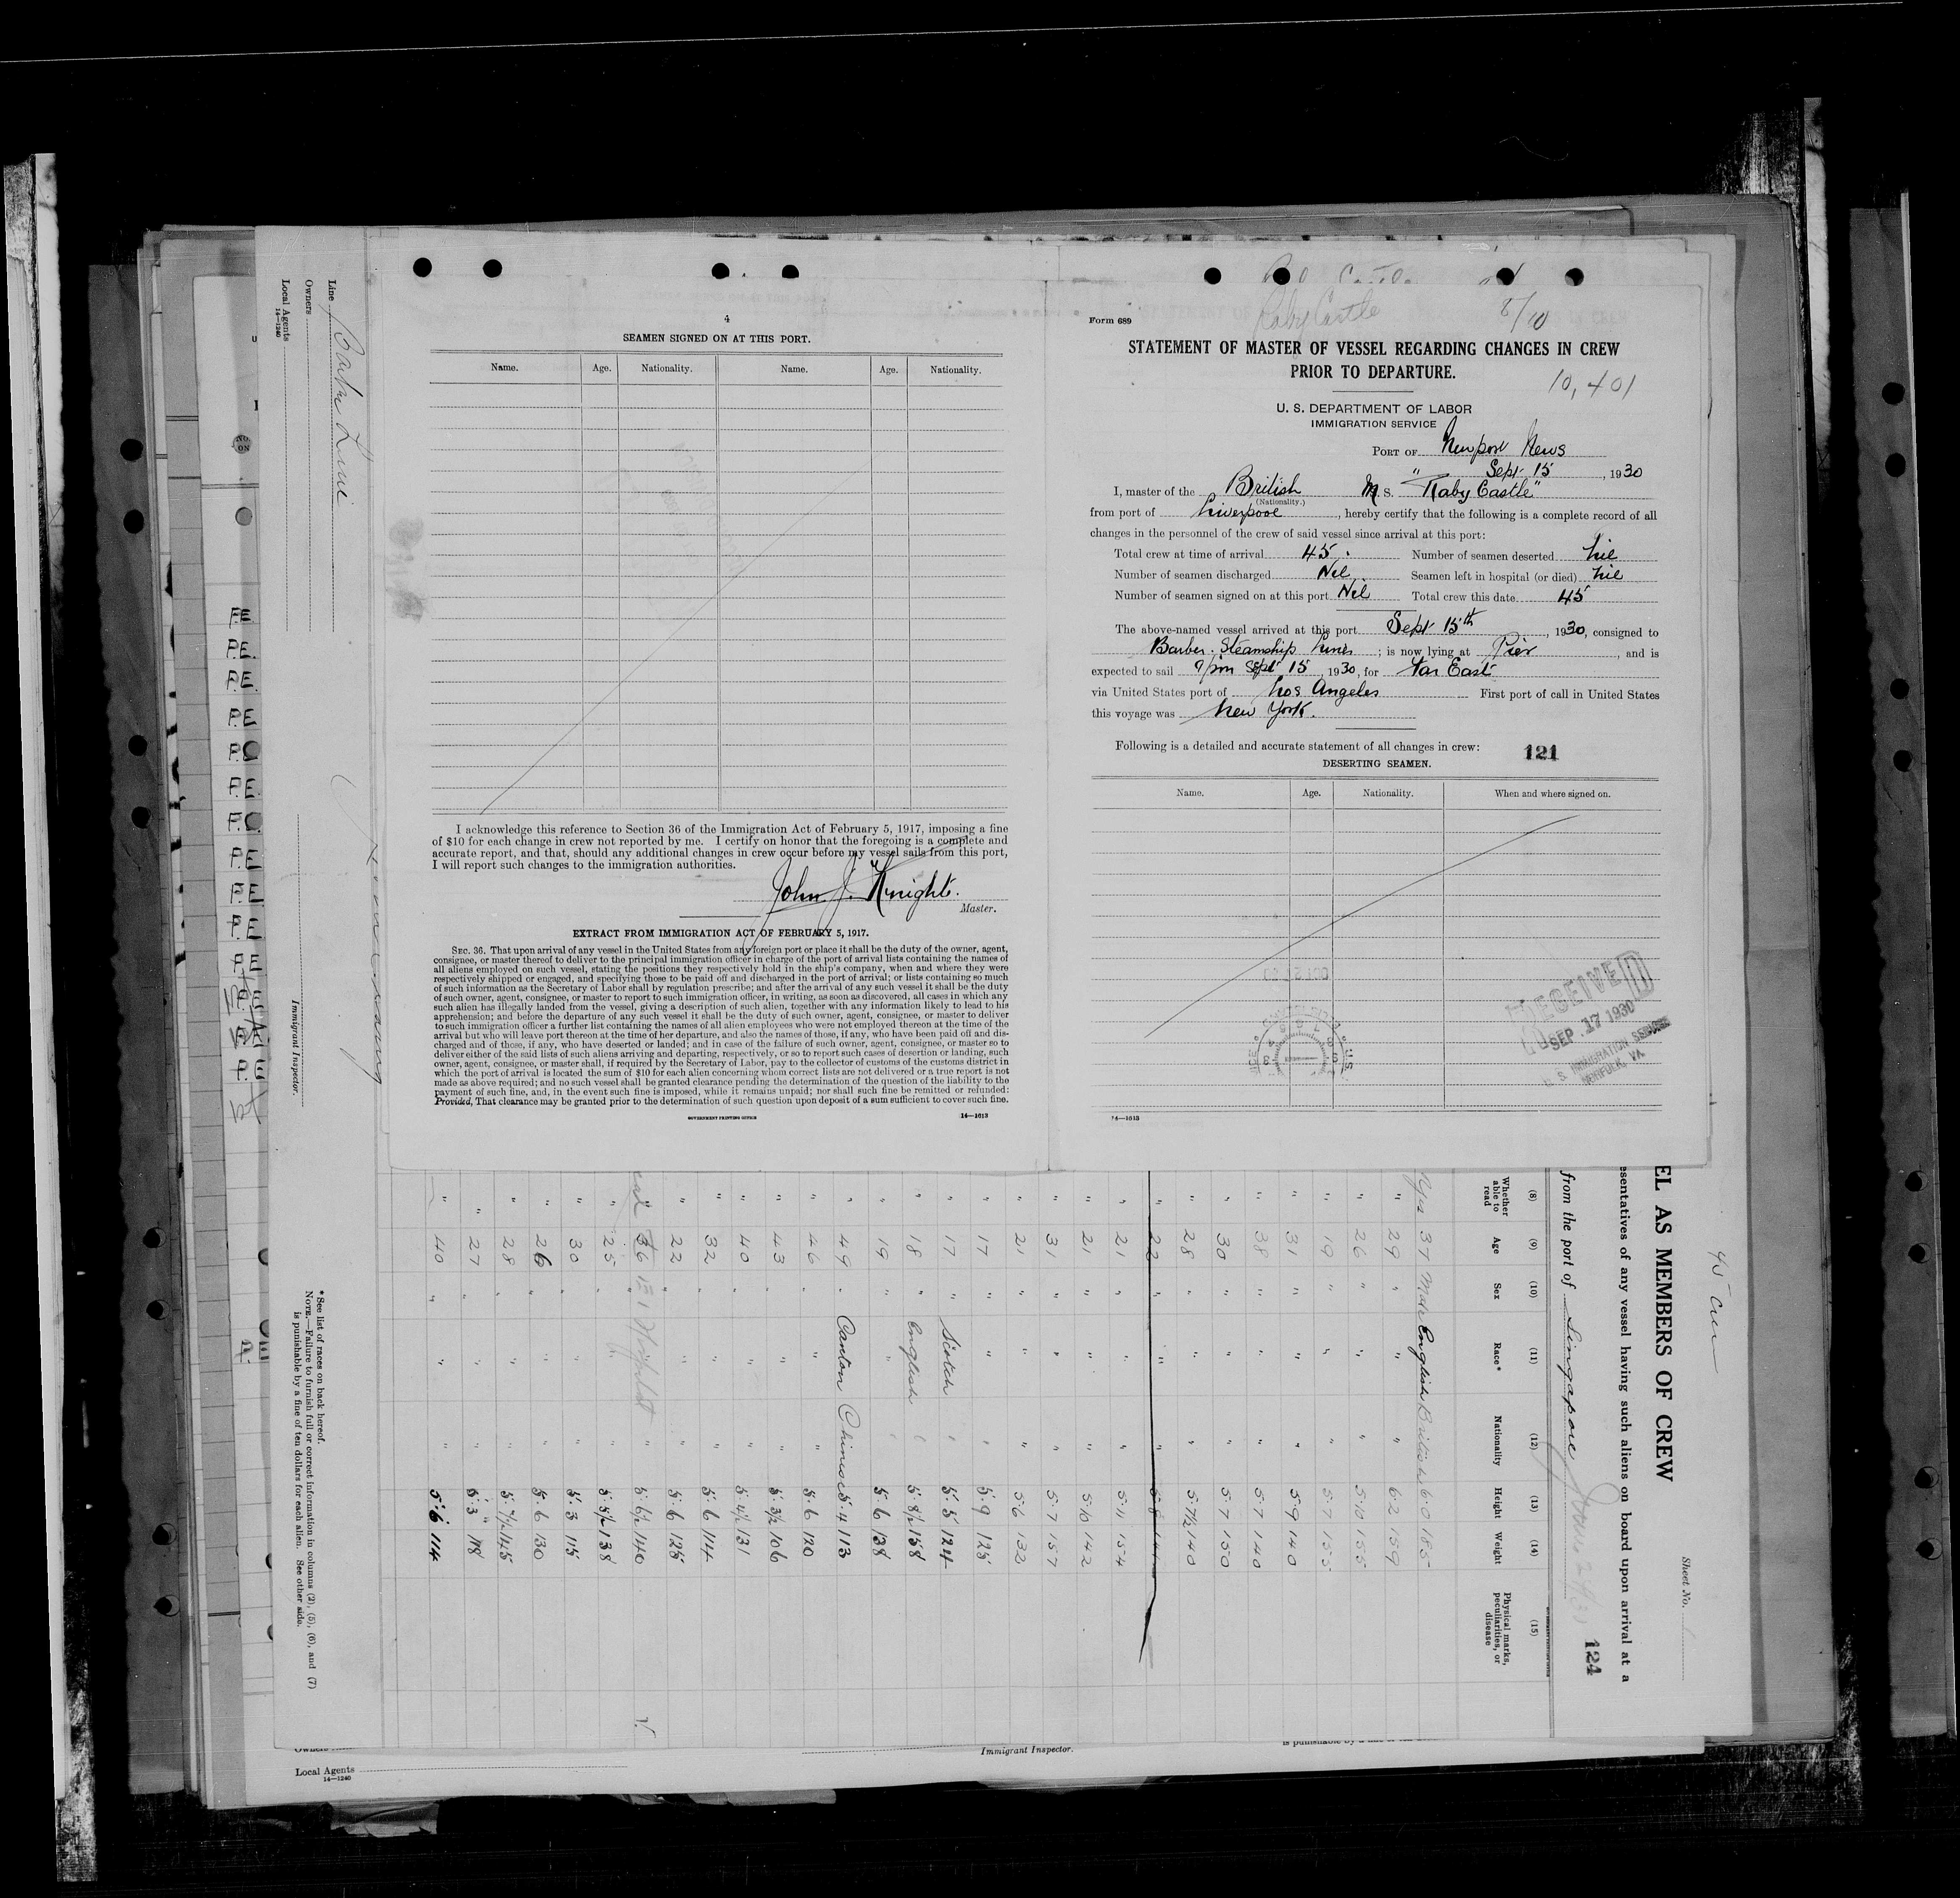 4
SEAMEN SIGNED ON AT THIS PORT.
Name. Age. Nationality. Name. Age. Nationality.
I acknowledge this reference to Section 36 of the Immigration Act of February 5, 1917, imposing a fine
of $10 for each change in crew not reported by me. I certify on honor that the foregoing is a complete and
accurate report, and that, should any additional changes in crew occur before my vessel sails from this port,
I will report such changes to the immigration authorities.
John J. Knight.
Master.
EXTRACT FROM IMMIGRATION ACT OF FEBRUARY 5, 1917.
SEC. 36. That upon arrival of any vessel in the United States from any foreign port or place it shall be the duty of the owner, agent,
consignee, or master thereof to deliver to the principal immigration officer in charge of the port of arrival lists containing the names of
all aliens employed on such vessel, stating the positions they respectively hold in the ship's company, when and where they were
respectively shipped or engaged, and specifying those to be paid off and discharged in the port of arrival; or lists containing so much
of such information as the Secretary of Labor shall by regulation prescribe; and after the arrival of any such vessel it shall be the duty
of such owner, agent, consignee, or master to report to such immigration officer, in writing, as soon as discovered, all cases in which any
such alien has illegally landed from the vessel, giving a description of such alien, together with any information likely to lead to his
apprehension; and before the departure of any such vessel it shall be the duty of such owner, agent, consignee, or master to deliver
to such immigration officer a further list containing the names of all alien employees who were not employed thereon at the time of the
arrival but who will leave port thereon at the time of her departure, and also the names of those, if any, who have been paid off and dis-
charged and of those, if any, who have deserted or landed; and in case of the failure of such owner, agent, consignee, or master so to
deliver either of the said lists of such aliens arriving and departing, respectively, or so to report such cases of desertion or landing, such
owner, agent, consignee, or master shall, if required by the Secretary of Labor, pay to the collector of customs of the customs district in
which the port of arrival is located the sum of $10 for each alien concerning whom correct lists are not delivered or a true report is not
made as above required; and no such vessel shall be granted clearance pending the determination of the question of the liability to the
payment of such fine, and, in the event such fine is imposed, while it remains unpaid; nor shall such fine be remitted or refunded:
Provided, That clearance may be granted prior to the determination of such question upon deposit of a sum sufficient to cover such fine.
GOVERNMENT PRINTING OFFICE 14—1613
Raby Castle 8/10
Form 689
STATEMENT OF MASTER OF VESSEL REGARDING CHANGES IN CREW
PRIOR TO DEPARTURE.
10,401
U. S. DEPARTMENT OF LABOR
IMMIGRATION SERVICE
PORT OF Newport News
Sept 15, 1930
I, master of the British M. S. "Raby Castle"
(Nationality.)
from port of Liverpool, hereby certify that the following is a complete record of all
changes in the personnel of the crew of said vessel since arrival at this port:
Total crew at time of arrival 45. Number of seamen deserted nil
Number of seamen discharged Nil Seamen left in hospital (or died) nil
Number of seamen signed on at this port Nil Total crew this date 45
The above-named vessel arrived at this port Sept 15th, 1930, consigned to
Barber Steamship Lines; is now lying at Pier, and is
expected to sail 9 pm Sept 15, 1930, for Far East
via United States port of Los Angeles First port of call in United States
this voyage was New York.
Following is a detailed and accurate statement of all changes in crew: 121
DESERTING SEAMEN.
Name. Age. Nationality. When and where signed on.
RECEIVED
SEP 17 1930
U. S. IMMIGRATION SERVICE
NORFOLK, VA.
14—1613
45 crew
Sheet No.
EL AS MEMBERS OF CREW
esentatives of any vessel having such aliens on board upon arrival at a
124
from the port of Singapore
(8) (9) (10) (11) (12) (13) (14) (15)
Whether able to read Age Sex Race* Nationality Height Weight Physical marks, peculiarities, or disease
Yes 37 Male English British 6·0 185
" 29 " " " 6·2 159
" 26 " " " 5·10 155
" 19 " " " 5·7 155
" 31 " " " 5·9 140
" 38 " " " 5·7 140
" 30 " " " 5·7 150
" 28 " " " 5·7½ 140
" 22 " " "
" 21 " " " 5·11 154
" 21 " " " 5·10 142
" 31 " " " 5·7 157
" 21 " " " 5·6 132
" 17 " " " 5·9 125
" 17 " Scotch " 5·5 124
" 18 " English " 5·8½ 158
" 19 " " " 5·6 138
" 49 " Canton Chinese 5·4 113
" 46 " " " 5·6 120
" 43 " " " 5·3½ 106
" 40 " " " 5·4½ 131
" 32 " " " 5·6 114
" 22 " " " 5·6 125
36 " 5·6½ 140
" 25 " " " 5·5½ 138
" 30 " " " 5·3 115
" 26 " " " 5·6 130
" 28 " " " 5·7½ 145
" 27 " " " 5·3 118
" 40 " " " 5·6 114
Line
Owners
Local Agents
14—1240
Immigrant Inspector.
*See list of races on back hereof.
NOTE.—Failure to furnish full or correct information in columns (2), (5), (6), and (7)
is punishable by a fine of ten dollars for each alien. See other side.
P.E.
P.E.
P.E.
P.E.
P.E.
P.E
P.E.
P.E
Owners
Local Agents
14—1240
Immigrant Inspector.